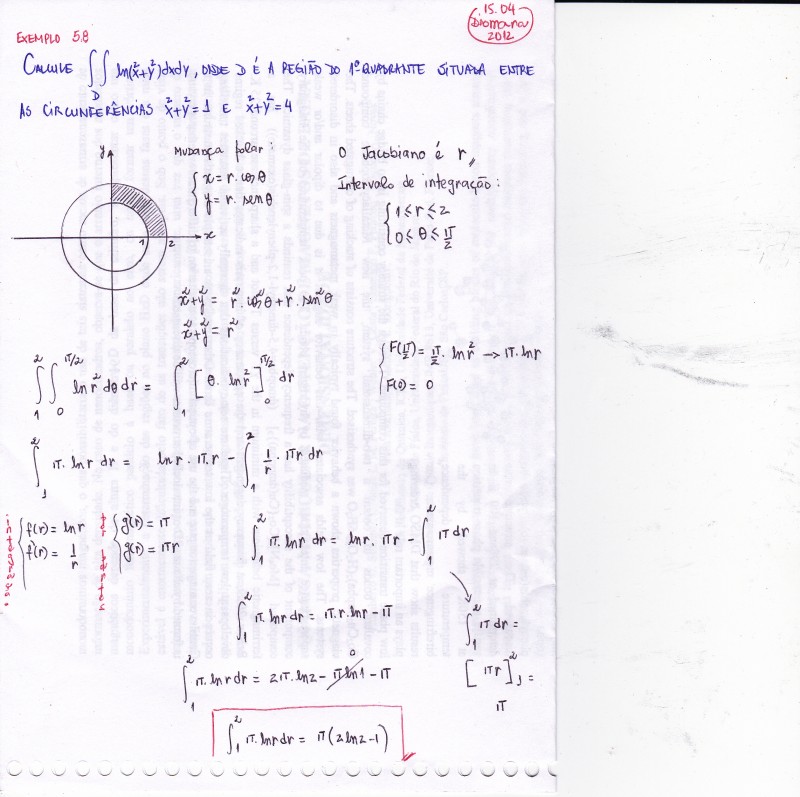 15.04
Diomara
2012
EXEMPLO 5.8
CALCULE ∬_D ln(x²+y²)dxdy, ONDE D É A REGIÃO DO 1º QUADRANTE SITUADA ENTRE
AS CIRCUNFERÊNCIAS x²+y²=1 E x²+y²=4
y
x
1
2
MUDANÇA polar:
{ x = r. cos θ
y = r. sen θ
O Jacobiano é r,,
Intervalo de integração:
{ 1 ≤ r ≤ 2
0 ≤ θ ≤ π/2
x²+y² = r². cos²θ + r². sen²θ
x²+y² = r²
∫₁² ∫₀^(π/2) ln r² dθ dr = ∫₁² [θ. ln r²]₀^(π/2) dr
{ F(π/2) = π/2. ln r² → π. ln r
F(0) = 0
∫₁² π. ln r dr = ln r. π.r - ∫₁² 1/r. πr dr
{ f(r) = ln r
f'(r) = 1/r
{ g'(r) = π
g(r) = πr
∫₁² π. ln r dr = ln r. πr - ∫₁² π dr
∫₁² π. ln r dr = π.r. ln r - π
∫₁² π dr =
[πr]₁² =
π
∫₁² π. ln r dr = 2π. ln 2 - π ln 1 - π
0
∫₁² π. ln r dr = π(2 ln 2 - 1)